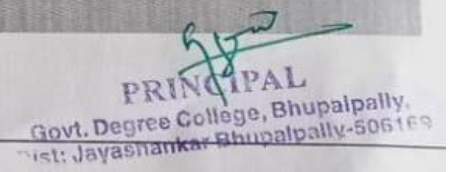 PRINCIPAL
Govt. Degree College, Bhupalpally,
Dist: Jayashankar Bhupalpally-506169